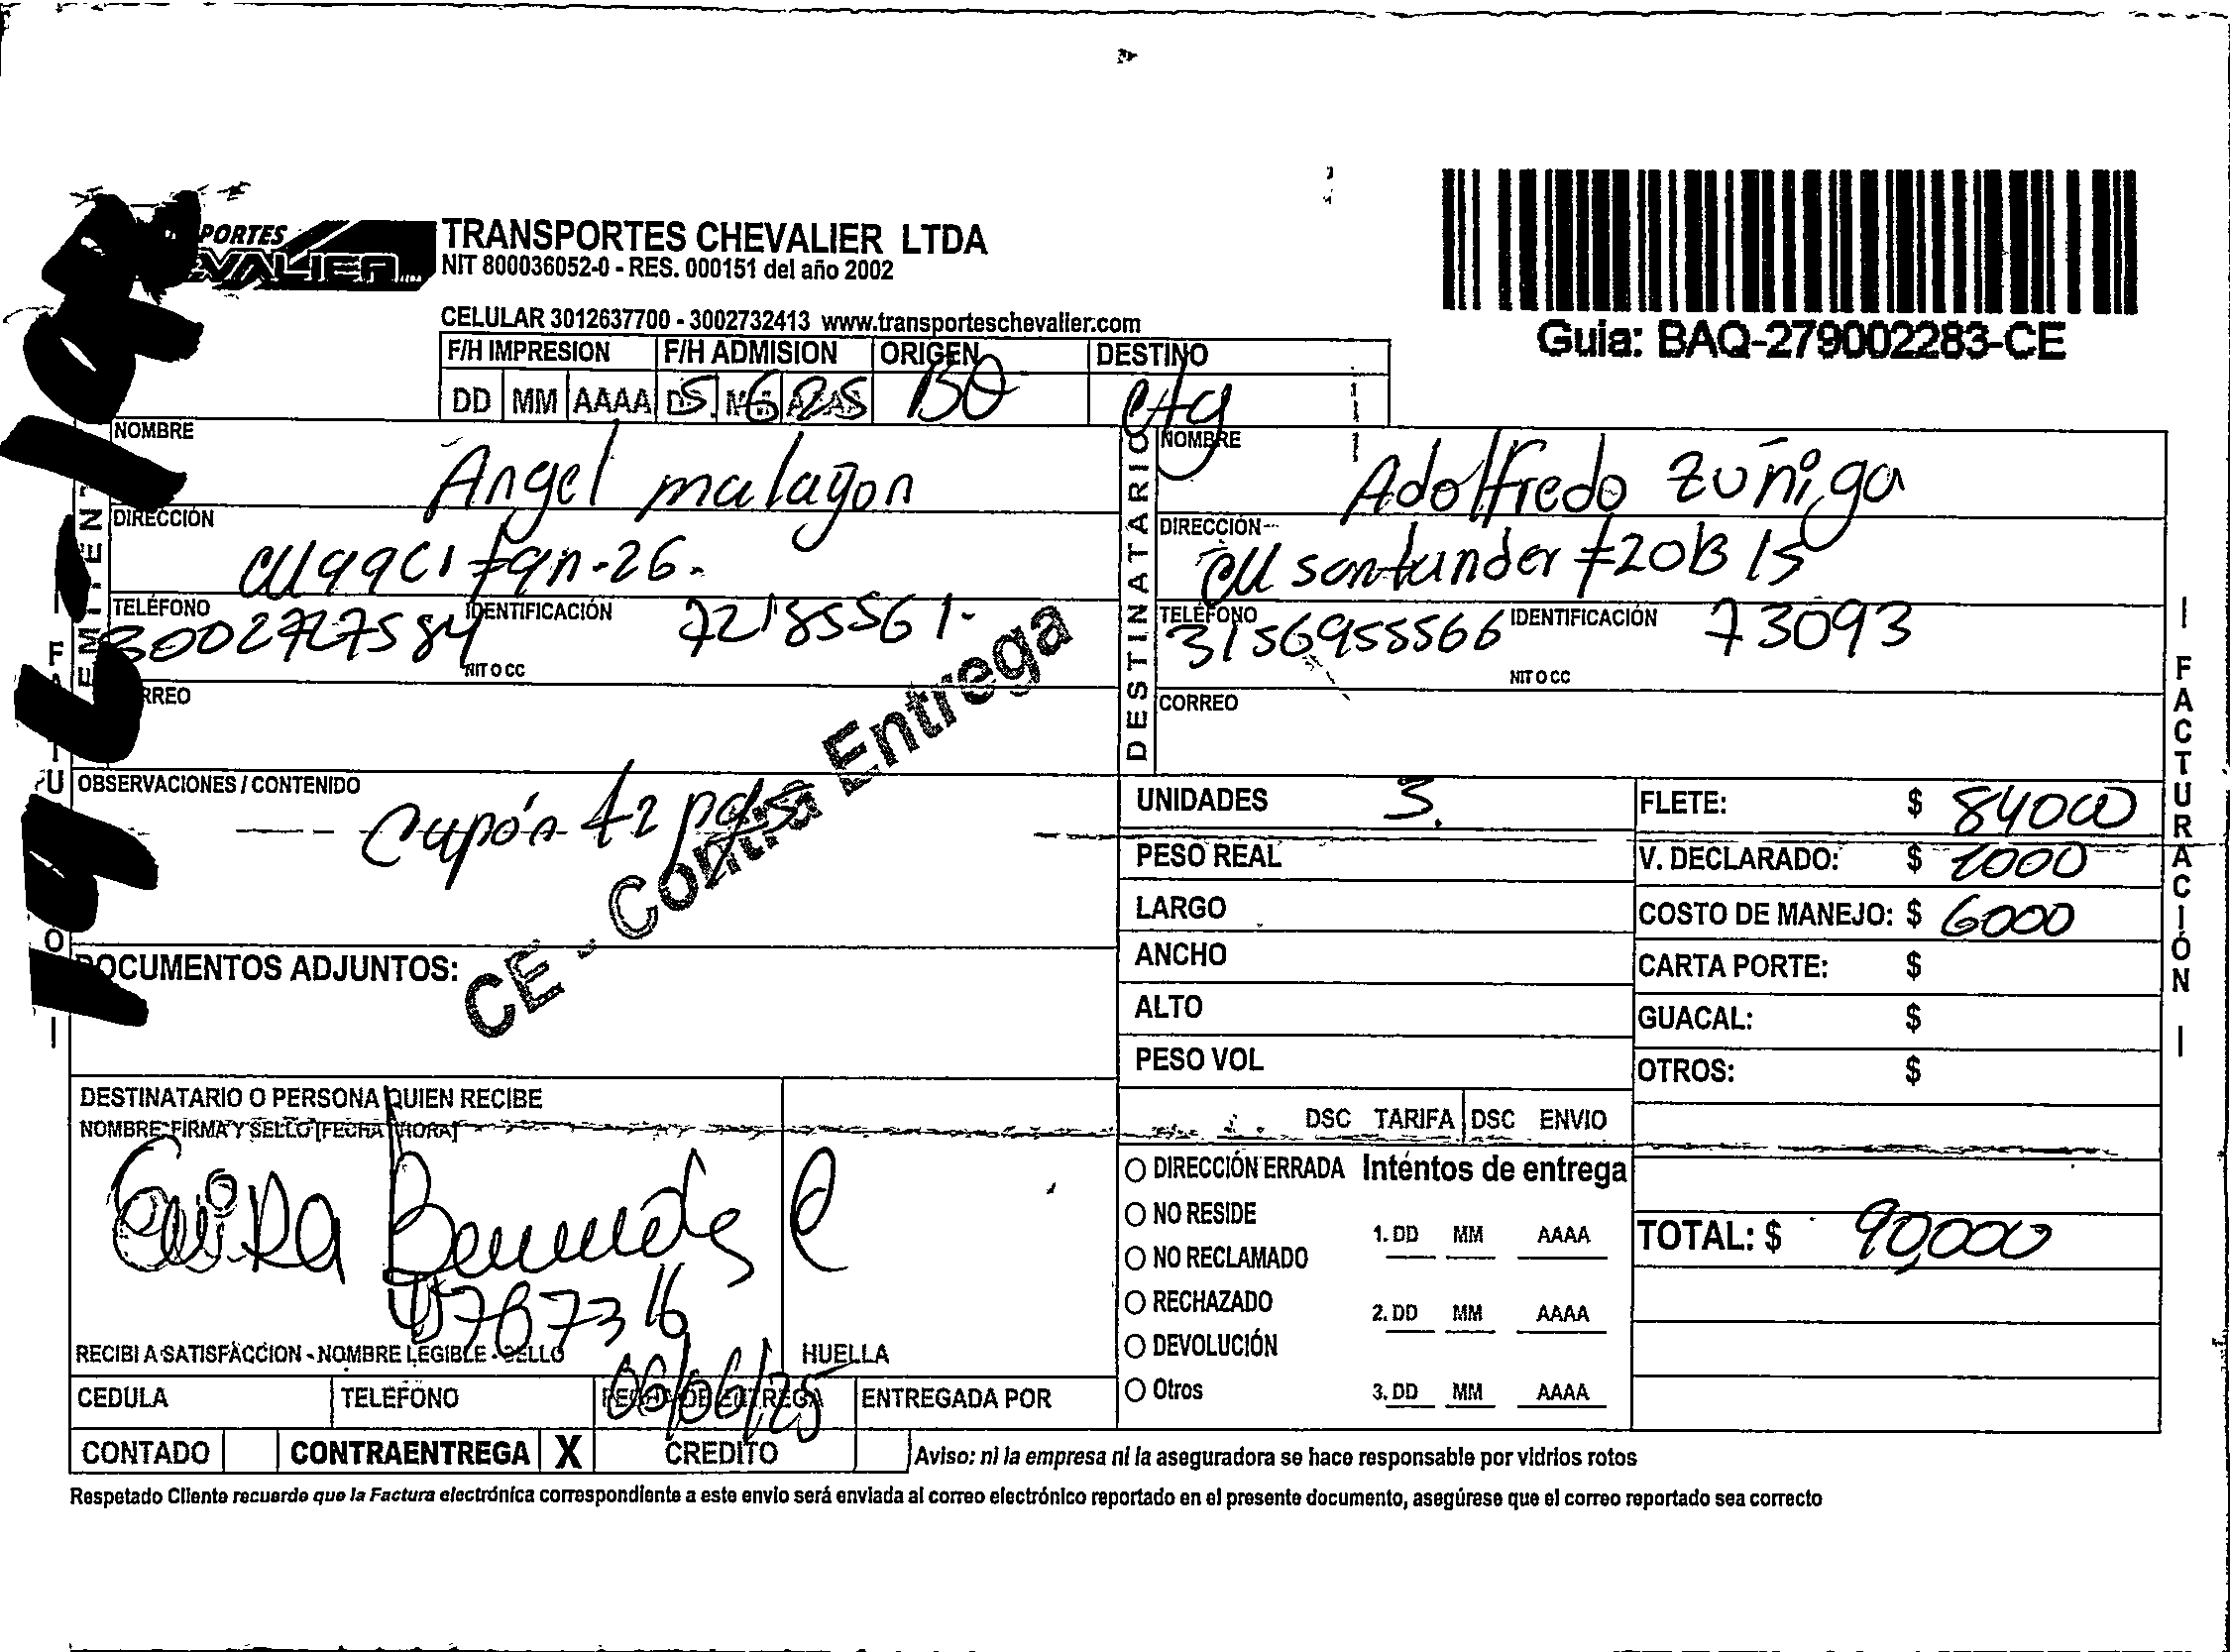 PORTES
TRANSPORTES CHEVALIER LTDA
NIT 800036052-0 - RES. 000151 del año 2002
CELULAR 3012637700 - 3002732413 www.transporteschevalier.com
Guia: BAQ-279002283-CE
F/H IMPRESION F/H ADMISION ORIGEN DESTINO
DD MM AAAA 5. 6 25 BQ Ctg
NOMBRE
Angel malagon
DIRECCIÓN
TELÉFONO
3002727584
IDENTIFICACIÓN
72185561-
NIT O CC
RREO
DESTINATARIO
NOMBRE
Adolfredo Zuñiga
DIRECCIÓN
Cll santander #20B 15
TELÉFONO
3156955566
IDENTIFICACIÓN
73093
NIT O CC
CORREO
OBSERVACIONES / CONTENIDO
CE - Contra Entrega
DOCUMENTOS ADJUNTOS:
UNIDADES 3.
PESO REAL
LARGO
ANCHO
ALTO
PESO VOL
DSC TARIFA DSC ENVIO
FLETE: $ 84000
V. DECLARADO: $ 1000
COSTO DE MANEJO: $ 6000
CARTA PORTE: $
GUACAL: $
OTROS: $
TOTAL: $ 90,000
FACTURACIÓN
DESTINATARIO O PERSONA QUIEN RECIBE
NOMBRE FIRMA Y SELLO [FECHA Y HORA]
RECIBI A SATISFACCION - NOMBRE LEGIBLE - SELLO
HUELLA
CEDULA TELEFONO FECHA DE ENTREGA ENTREGADA POR
06/06/25
DIRECCIÓN ERRADA Intentos de entrega
NO RESIDE
1. DD MM AAAA
NO RECLAMADO
RECHAZADO
2. DD MM AAAA
DEVOLUCIÓN
Otros 3. DD MM AAAA
CONTADO CONTRAENTREGA X CREDITO
Aviso: ni la empresa ni la aseguradora se hace responsable por vidrios rotos
Respetado Cliente recuerde que la Factura electrónica correspondiente a este envio será enviada al correo electrónico reportado en el presente documento, asegúrese que el correo reportado sea correcto